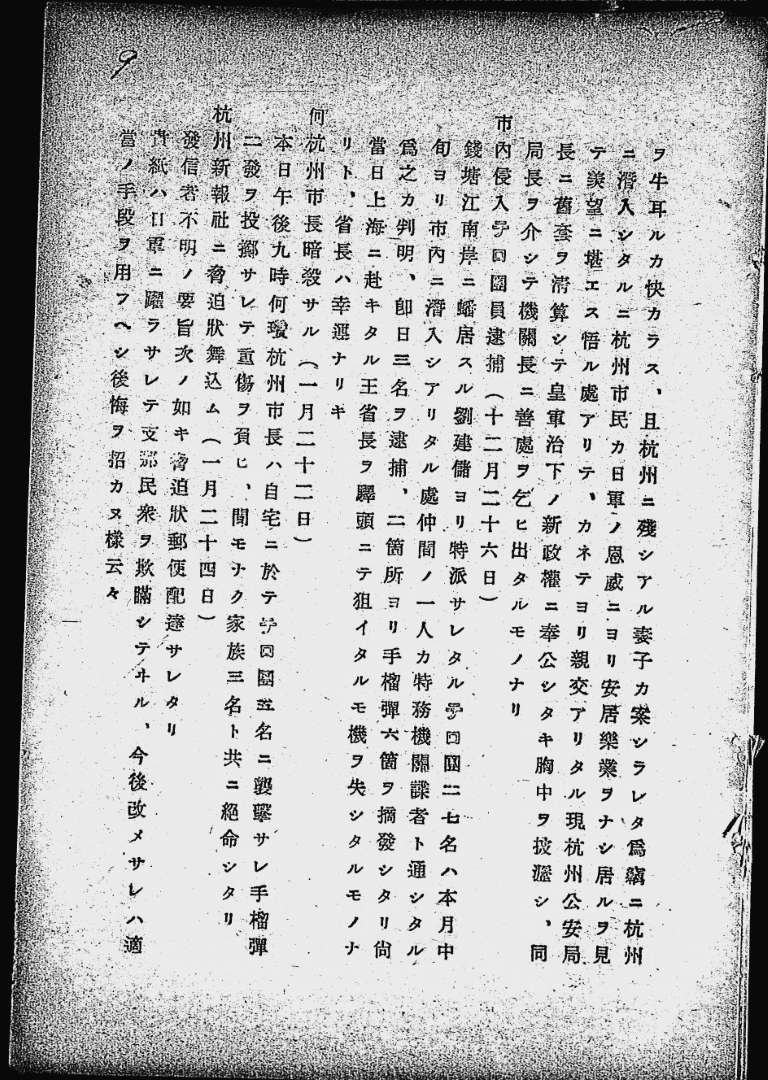 9
ヲ牛耳ルカ快カラス、且杭州ニ殘シアル妻子カ案シラレタ爲竊ニ杭州
ニ潛入シタルニ杭州市民カ日軍ノ恩威ニヨリ安居樂業ヲナシ居ルヲ見
テ羨望ニ堪エス悟ル處アリテ、カネテヨリ親交アリタル現杭州公安局
長ニ舊套ヲ淸算シテ皇軍治下ノ新政權ニ奉公シタキ胸中ヲ披瀝シ、同
局長ヲ介シテ機關長ニ善處ヲ乞ヒ出タルモノナリ
市內侵入テロ團員逮捕（十二月二十六日）
錢塘江南岸ニ蟠居スル劉建儲ヨリ特派サレタルテロ團二七名ハ本月中
旬ヨリ市內ニ潛入シアリタル處仲間ノ一人カ特務機關諜者ト通シタル
爲之カ判明、卽日三名ヲ逮捕、二箇所ヨリ手榴彈六箇ヲ摘發シタリ尙
當日上海ニ赴キタル王省長ヲ驛頭ニテ狙イタルモ機ヲ失シタルモノナ
リト、省長ハ幸運ナリキ
何杭州市長暗殺サル（一月二十二日）
本日午後九時何瓚杭州市長ハ自宅ニ於テテロ團五名ニ襲擊サレ手榴彈
二發ヲ投擲サレテ重傷ヲ負ヒ、聞モナク家族三名ト共ニ絕命シタリ
杭州新報社ニ脅迫狀舞込ム（一月二十四日）
發信者不明ノ要旨次ノ如キ脅迫狀郵便配達サレタリ
貴紙ハ日軍ニ躍ラサレテ支那民衆ヲ欺瞞シテヰル、今後改メサレハ適
當ノ手段ヲ用フヘシ後悔ヲ招カヌ樣云々